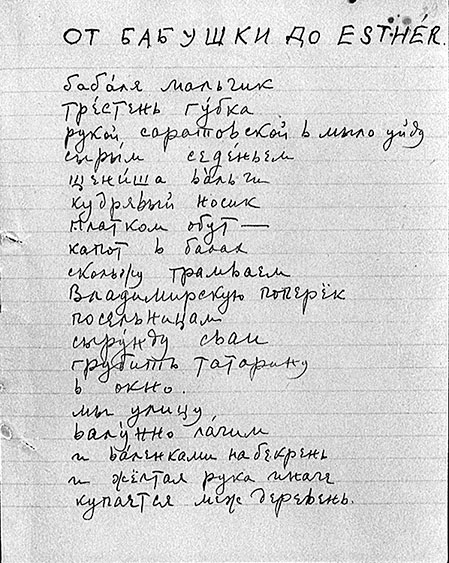 ОТ БАБУШКИ ДО ESTHÉR.
баба́ля мальчик
тре́стень гу́бка
рукой саратовской в мыло уйду
сыры́м седе́ньем
щени́ша ва́льги
кудрявый носик
платком обут —
капот в балах
скольжу трамваем
Владимирскую поперёк
посельницам
сыру́нду сваи
грубить татарину
в окно.
мы улицу
валу́нно ла́чим
и ва́ленками набекрень
и жёлтая рука иначе
купается меж деревень.